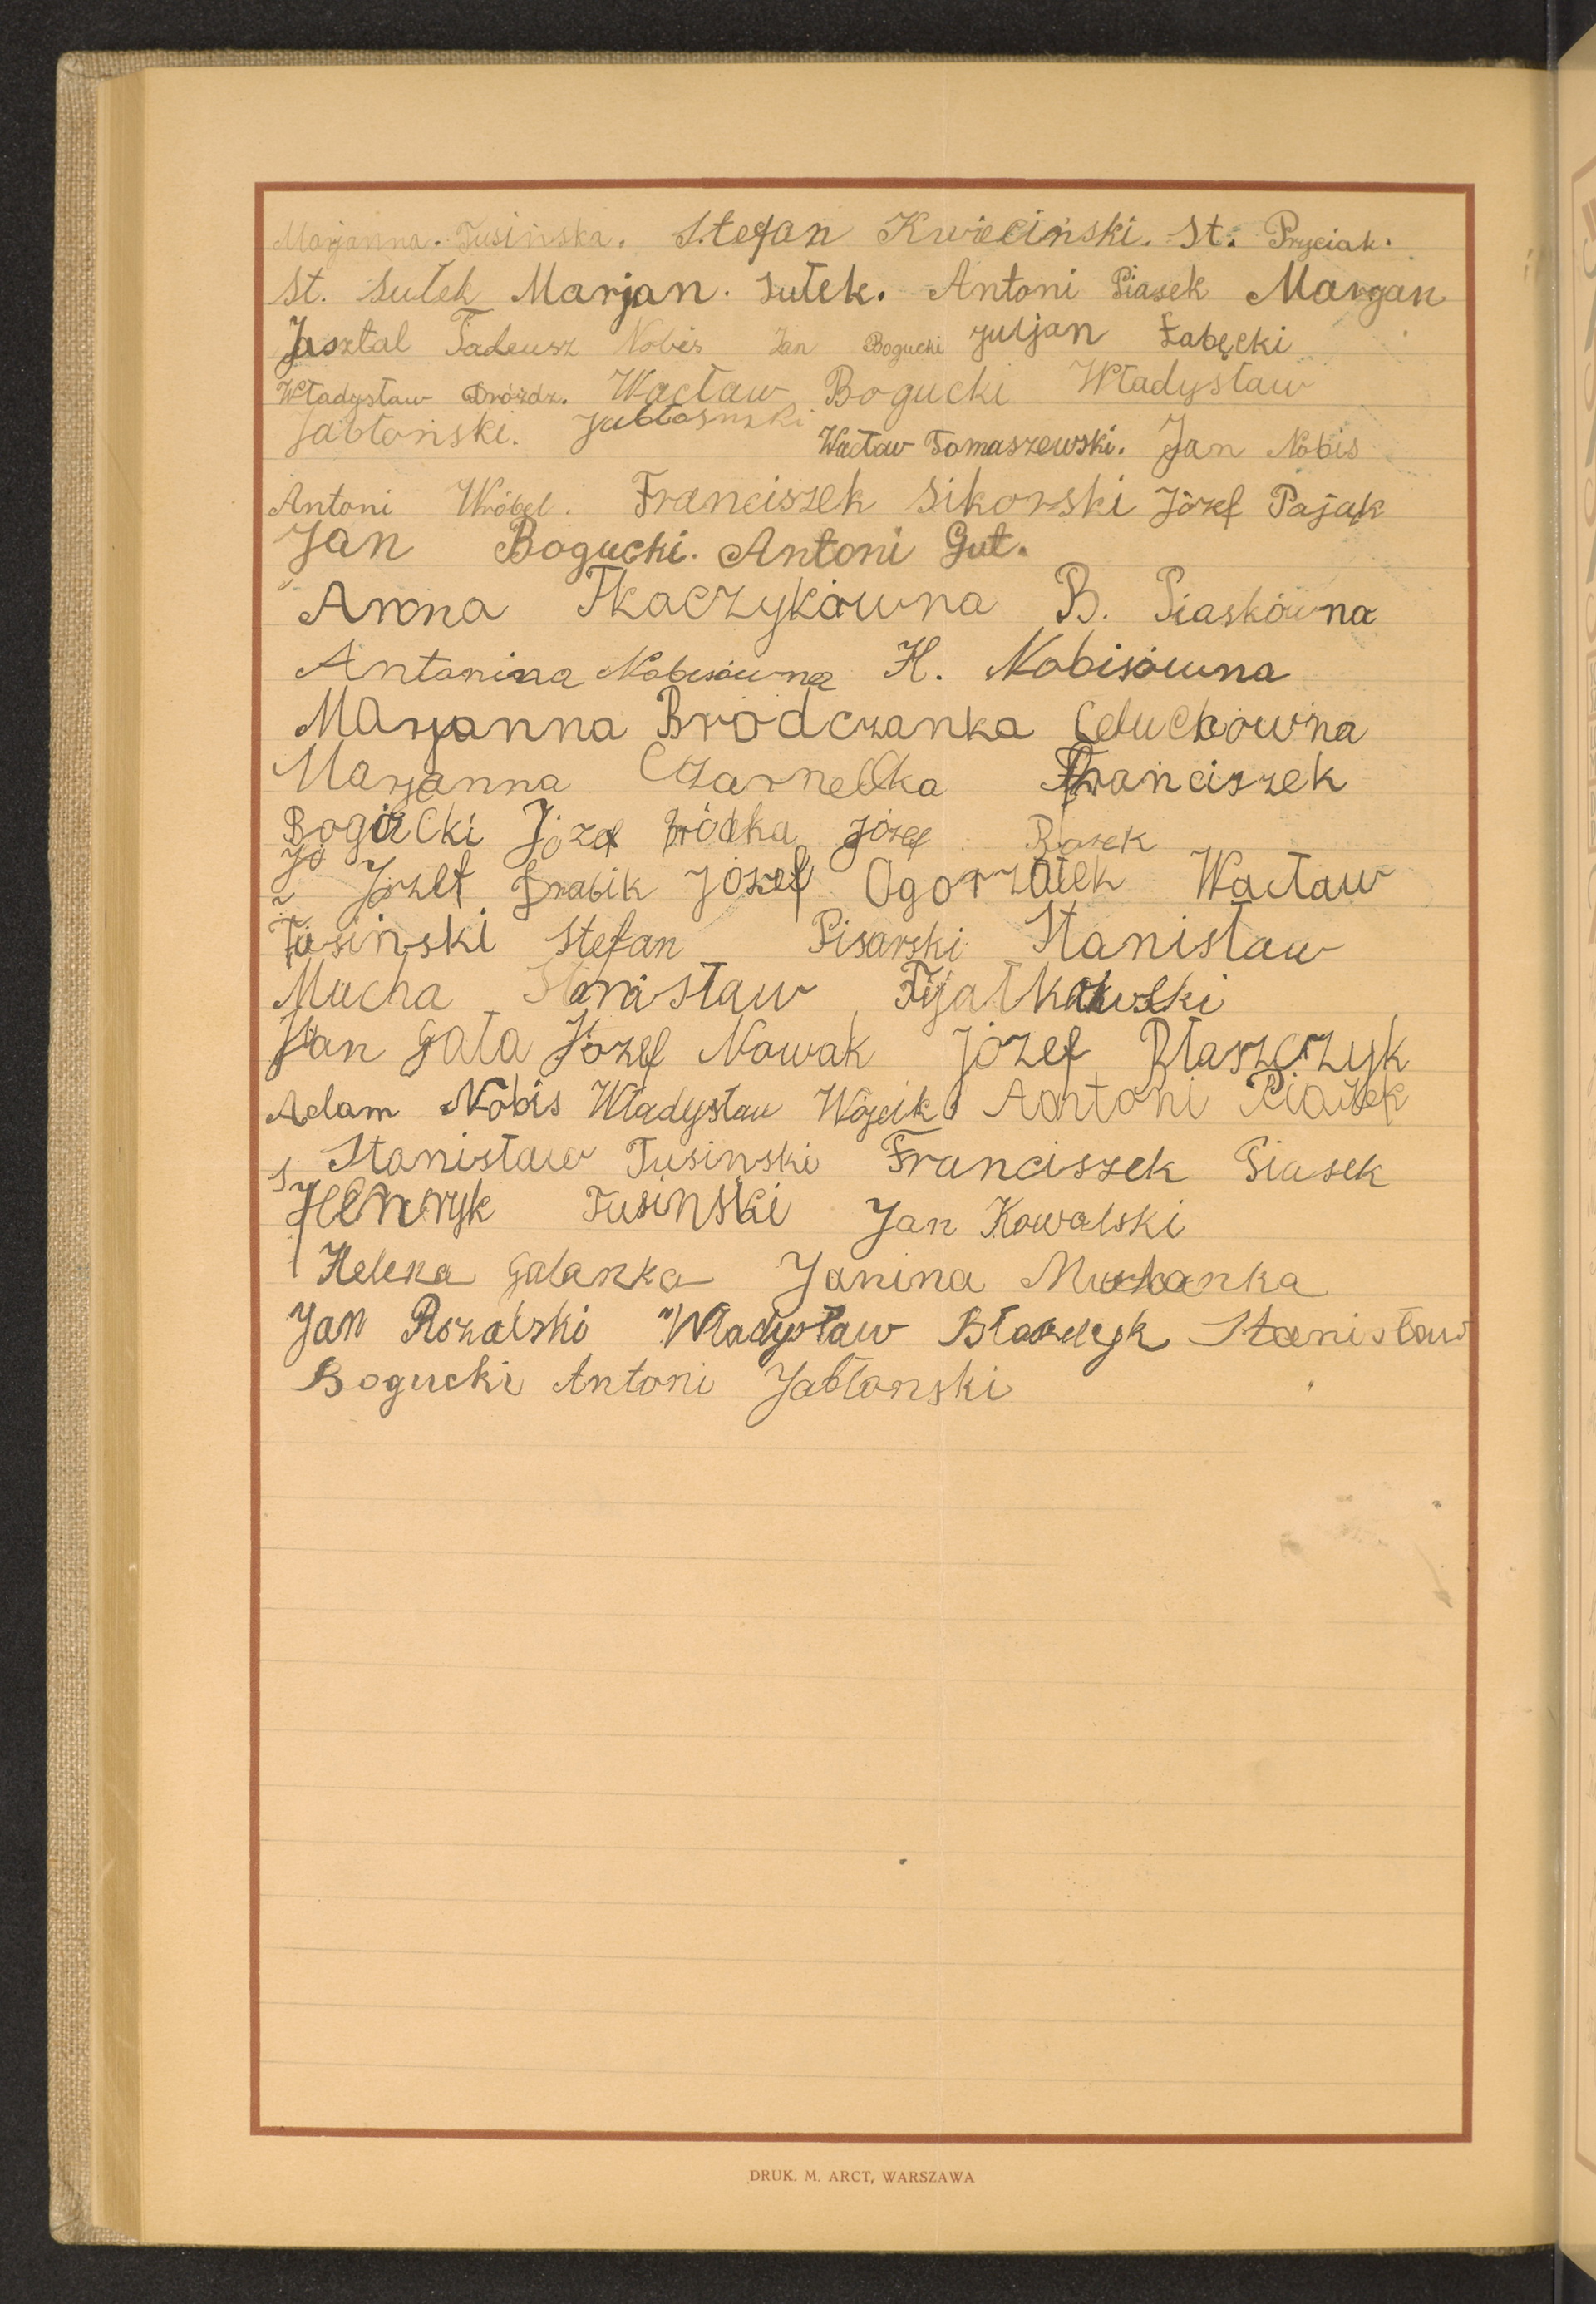 Marjanna. Tusińska. Stefan Kwieciński. St. Pryciak.
St. Sułek Marjan. Sułek. Antoni Piasek Marjan
Jasztal Tadeusz Nobis Jan Bogucki Juljan Łabęcki
Władysław Dróżdż. Wacław Bogucki Władysław
Jabłoński.
Wacław Tomaszewski. Jan Nobis
Antoni Wróbel. Franciszek Sikorski Józef Pająk
Jan Bogucki. Antoni Gut.
Anna Tkaczykówna B. Piaskówna
Antonina Nobisówna H. Nobisówna
Marjanna Brodczanka Celuchówna
Marjanna Czarnecka Franciszek
Bogucki Józef Bródka Józef Rosek
Józef Grabik Józef Ogorzałek Wacław
Tusiński Stefan Pisarski Stanisław
Mucha Stanisław Fijałkowski
Jan Gała Józef Nowak Józef Błaszczyk
Adam Nobis Władysław Wójcik Antoni Piasek
Stanisław Tusiński Franciszek Piasek
Henryk Tusiński Jan Kowalski
Helena Galanka Janina Muchanka
Jan Rozalski Władysław Stanisław
Bogucki Antoni Jabłonski
DRUK. M. ARCT, WARSZAWA